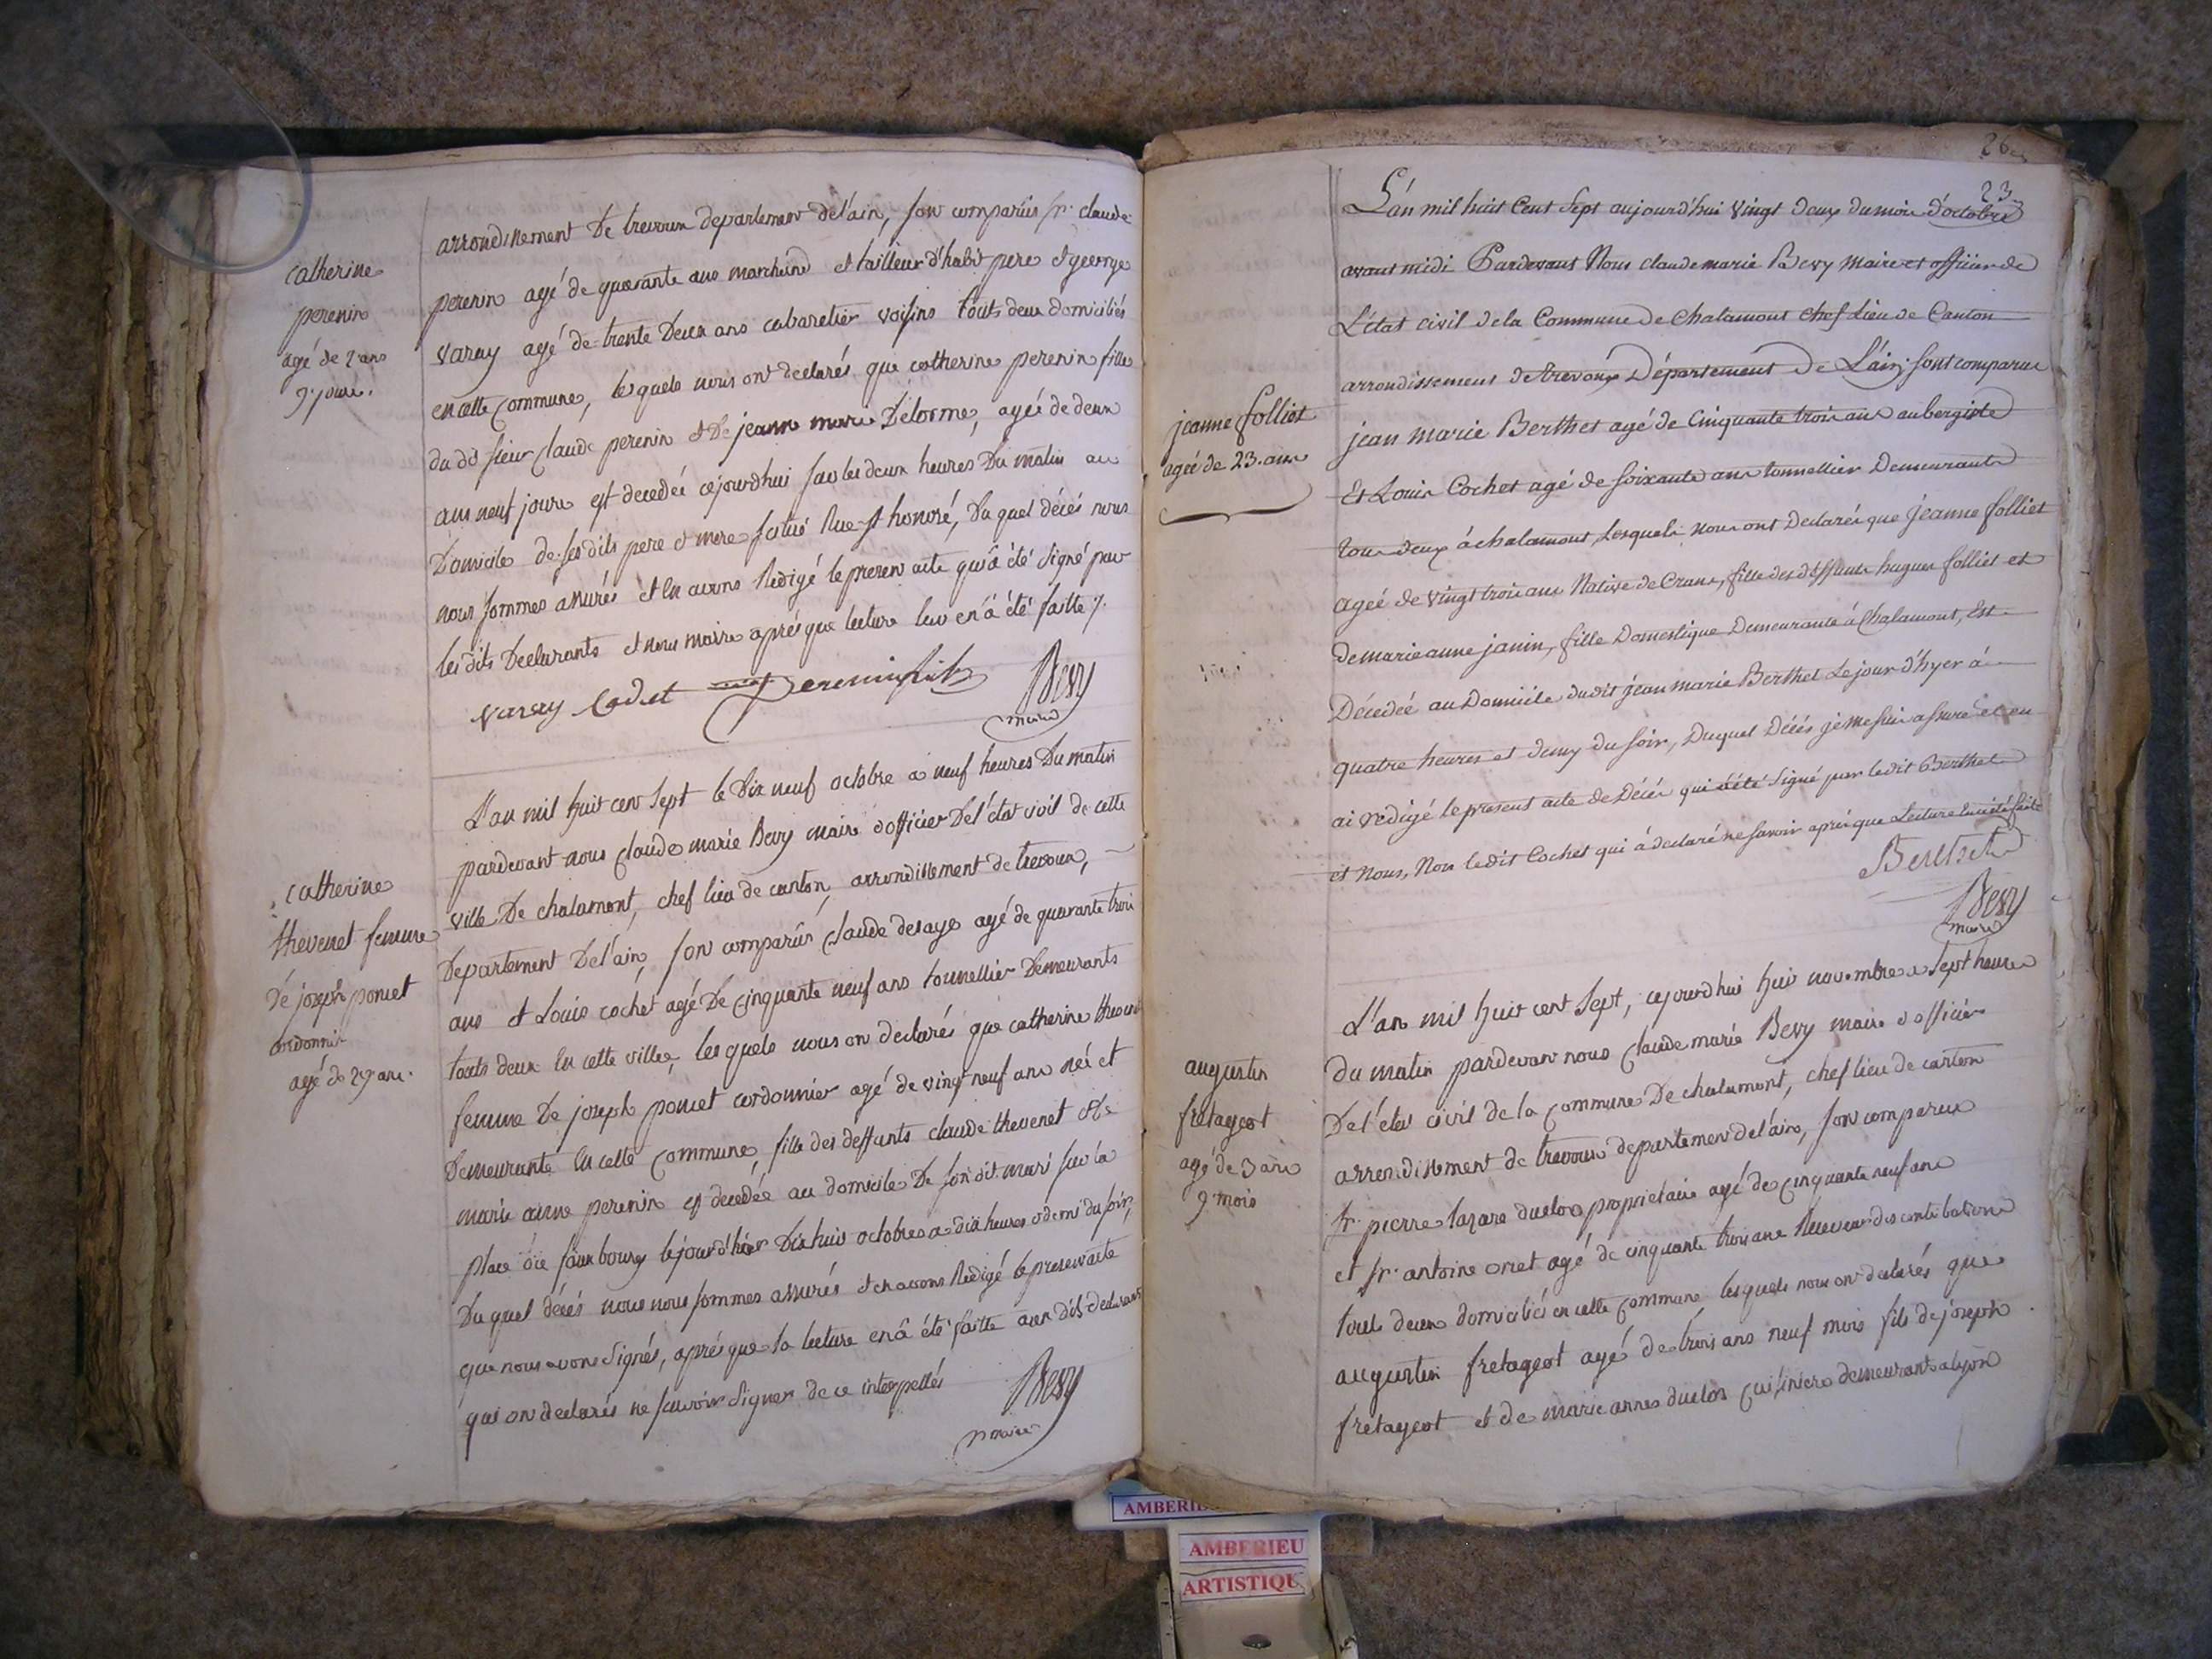 catherine
perenin
agé de 2 ans
9. jours.
arrondissement De trevoux departement de l'ain, son comparûs sr. claude
perenin agé de quarante ans marchand et tailleur d'habit pere et george
varay agé de trente Deux ans cabaretier voisins touts deux domiciliés
en cette commune, lesquels nous ont declarés que catherine perenin fille
du dit sieur claude perenin et De jeanne marie Delorme, agée de deux
ans neuf jours est decedée cejourdhui sur les deux heures Du matin au
Domicile de ses dits pere et mere situé Rue st honoré, Du quel décés nous
nous sommes assurés et en avons Redigé le presen acte qui â été signé par
les dits Declarants et nous maire aprés que lecture leur en â été faitte ./.
varay Cadet perenin
Bevy
maire
catherine
thevenet femme
De joseph poncet
cordonnier
agé de 29 ans.
L'an mil huit cen sept le Dix neuf octobre a neuf heures Du matin
pardevant nous claude marie Bevy maire et officier De l'état civil de cette
ville De chalamont, chef lieu de canton, arrondissement de trevoux,
Departement De l'ain, son comparûs claude desaye agé de quarante trois
ans et Louis cochet agé De cinquante neuf ans tonnellier Demeurants
touts deux En cette ville, les quels nous on declarés que catherine thevenet
femme De joseph poncet cordonnier agé de vingt neuf ans née et
Demeurante En cette commune, fille des deffunts claude thevenet et De
marie anne perenin est decedée au domicile De son dit mari sur la
place du faux bourg le jour d'hier Dix huit octobre a dix heures et demi du soir,
Du quel décés nous nous sommes assurés et en avons Redigé le presen acte
que nous avons signés, aprés que la lecture en â été faitte aux dits declarants
qui on declarés ne sçavoir signer de ce interpellés
Bevy
maire
26
23
jeanne folliet
ageé de 23. ans
L'an mil huit Cent Sept aujourd'hui Vingt deux du mois d'octobre
avant midi Pardevant Nous claude marie Bevy Maire et officier de
L'état civil de la Commune de Chalamont Chef Lieu de Canton
arrondissement de Trevoux Département De L'ain, sont comparus
jean marie Berthet agé de Cinquante trois ans aubergiste
Et Louis Cochet agé de soixante ans tonnellier Demeurants
tous deux à chalamont, Lesquels nous ont Declarés que jeanne folliet
ageé de vingt trois ans Native de Crans, fille des deffunts hugues folliet et
de marie anne janin, fille Domestique Demeurante à Chalamont, Est
Décedée au Domicile dudit jean marie Berthet Le jour d'hyer à
quatre heures et demy du soir, Duquel Décés je me suis assuré et en
ai redigé le present acte de Décés qui â été signé par ledit Berthet
et Nous, Non ledit Cochet qui á declaré ne savoir aprés que Lecture En a été faite
Bertet
Bevy
maire
augustin
fretageot
agé de 3 ans
9. mois
L'an mil huit cent sept, cejourdhui huit novembre a sept heures
du matin pardevant nous claude marie Bevy maire et officier
De l'état civil de la commune De chalamont, chef lieu de canton
arrondissement de trevoux departement de l'ain, son comparus
sr. pierre lazare duclos proprietaire agé de cinquante neuf ans
et sr. antoine oriet agé de cinquante trois ans Receveur des contributions
touts deux domiciliés en cette commune lesquels nous on declarés que
augustin fretageot agé de trois ans neuf mois fils de joseph
fretageot et de marie anne duclos cuisiniers demeurants a lyon
AMBERIEU
ARTISTIQUE